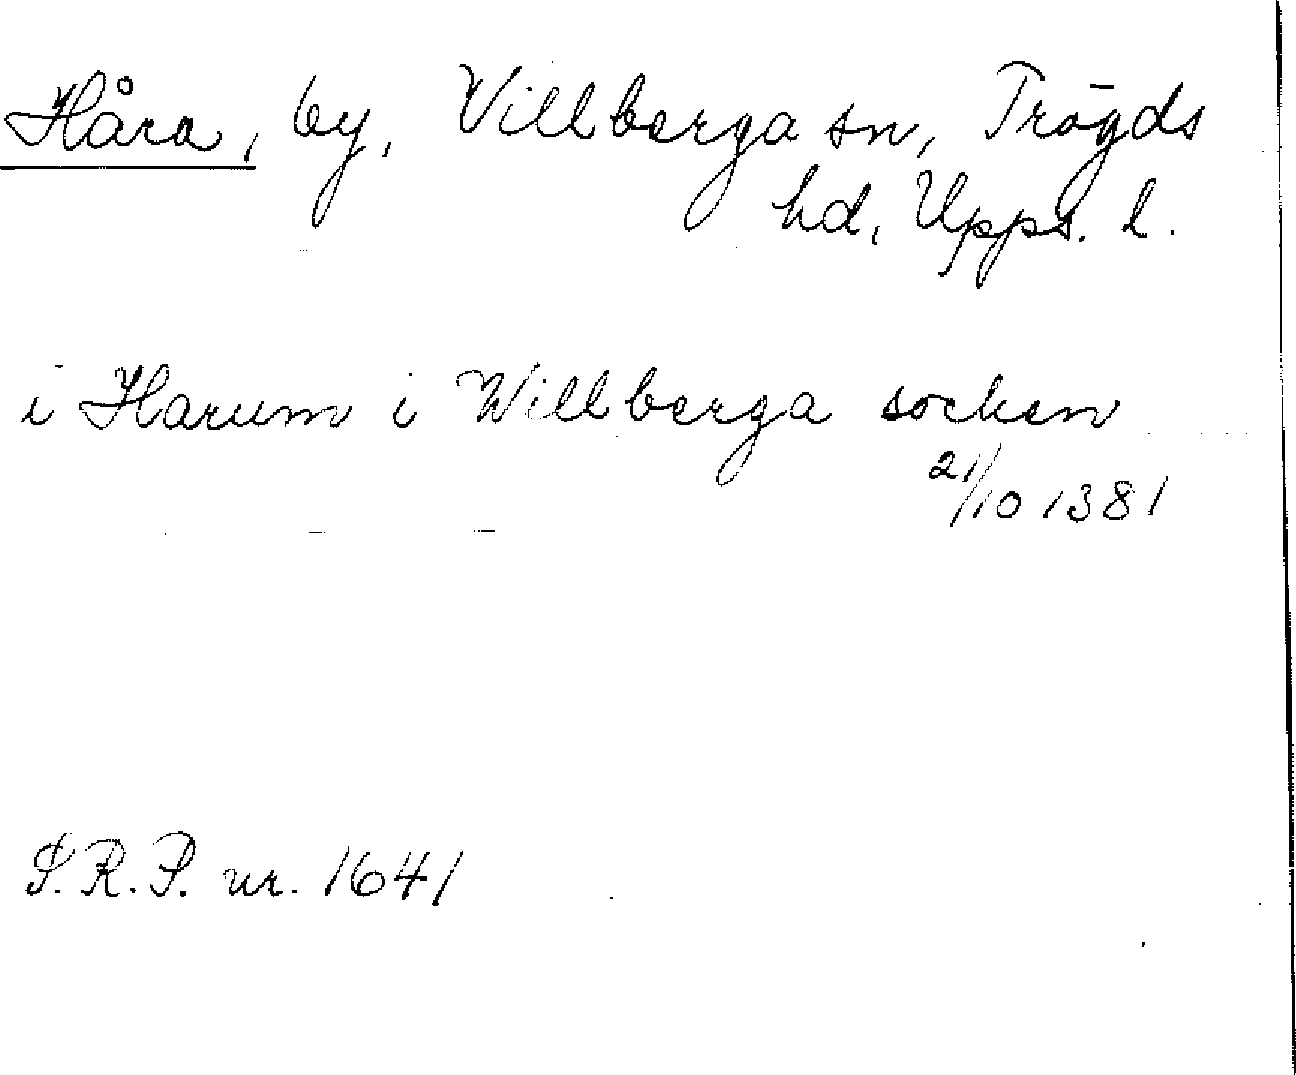 Håra, by, Villberga sn, Trögds
hd, Upps. l.
i Harum i Willberga socken
21/10 1381
S.R.P. nr. 1641